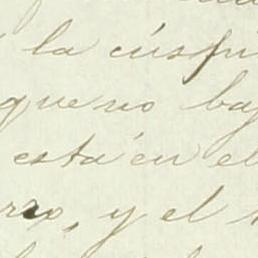 la cúspi
que no baj
está en el
rro, y el